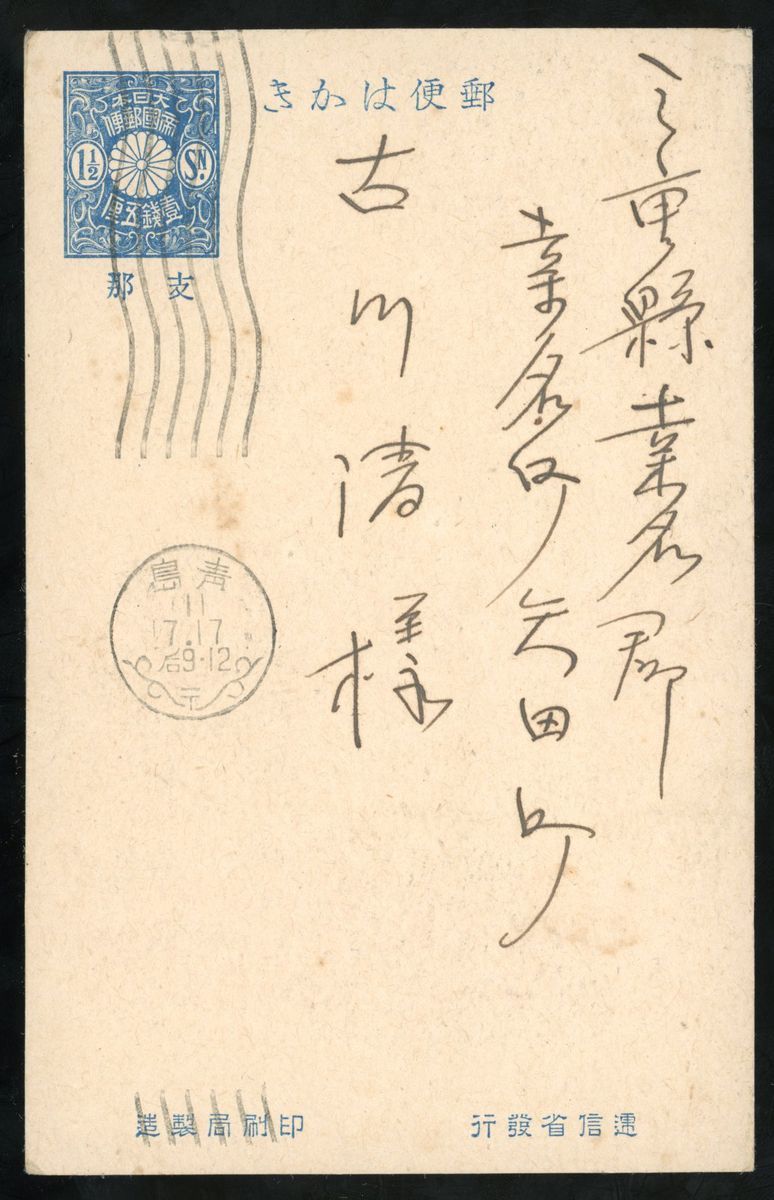 郵便はかき
大日本
帝國郵便
1½ Sɴ.
壹錢五厘
支那
三重縣桑名郡
桑名町矢田町
古川清様
青島
11
17.17
后9-12
遞信省發行
印刷局製造